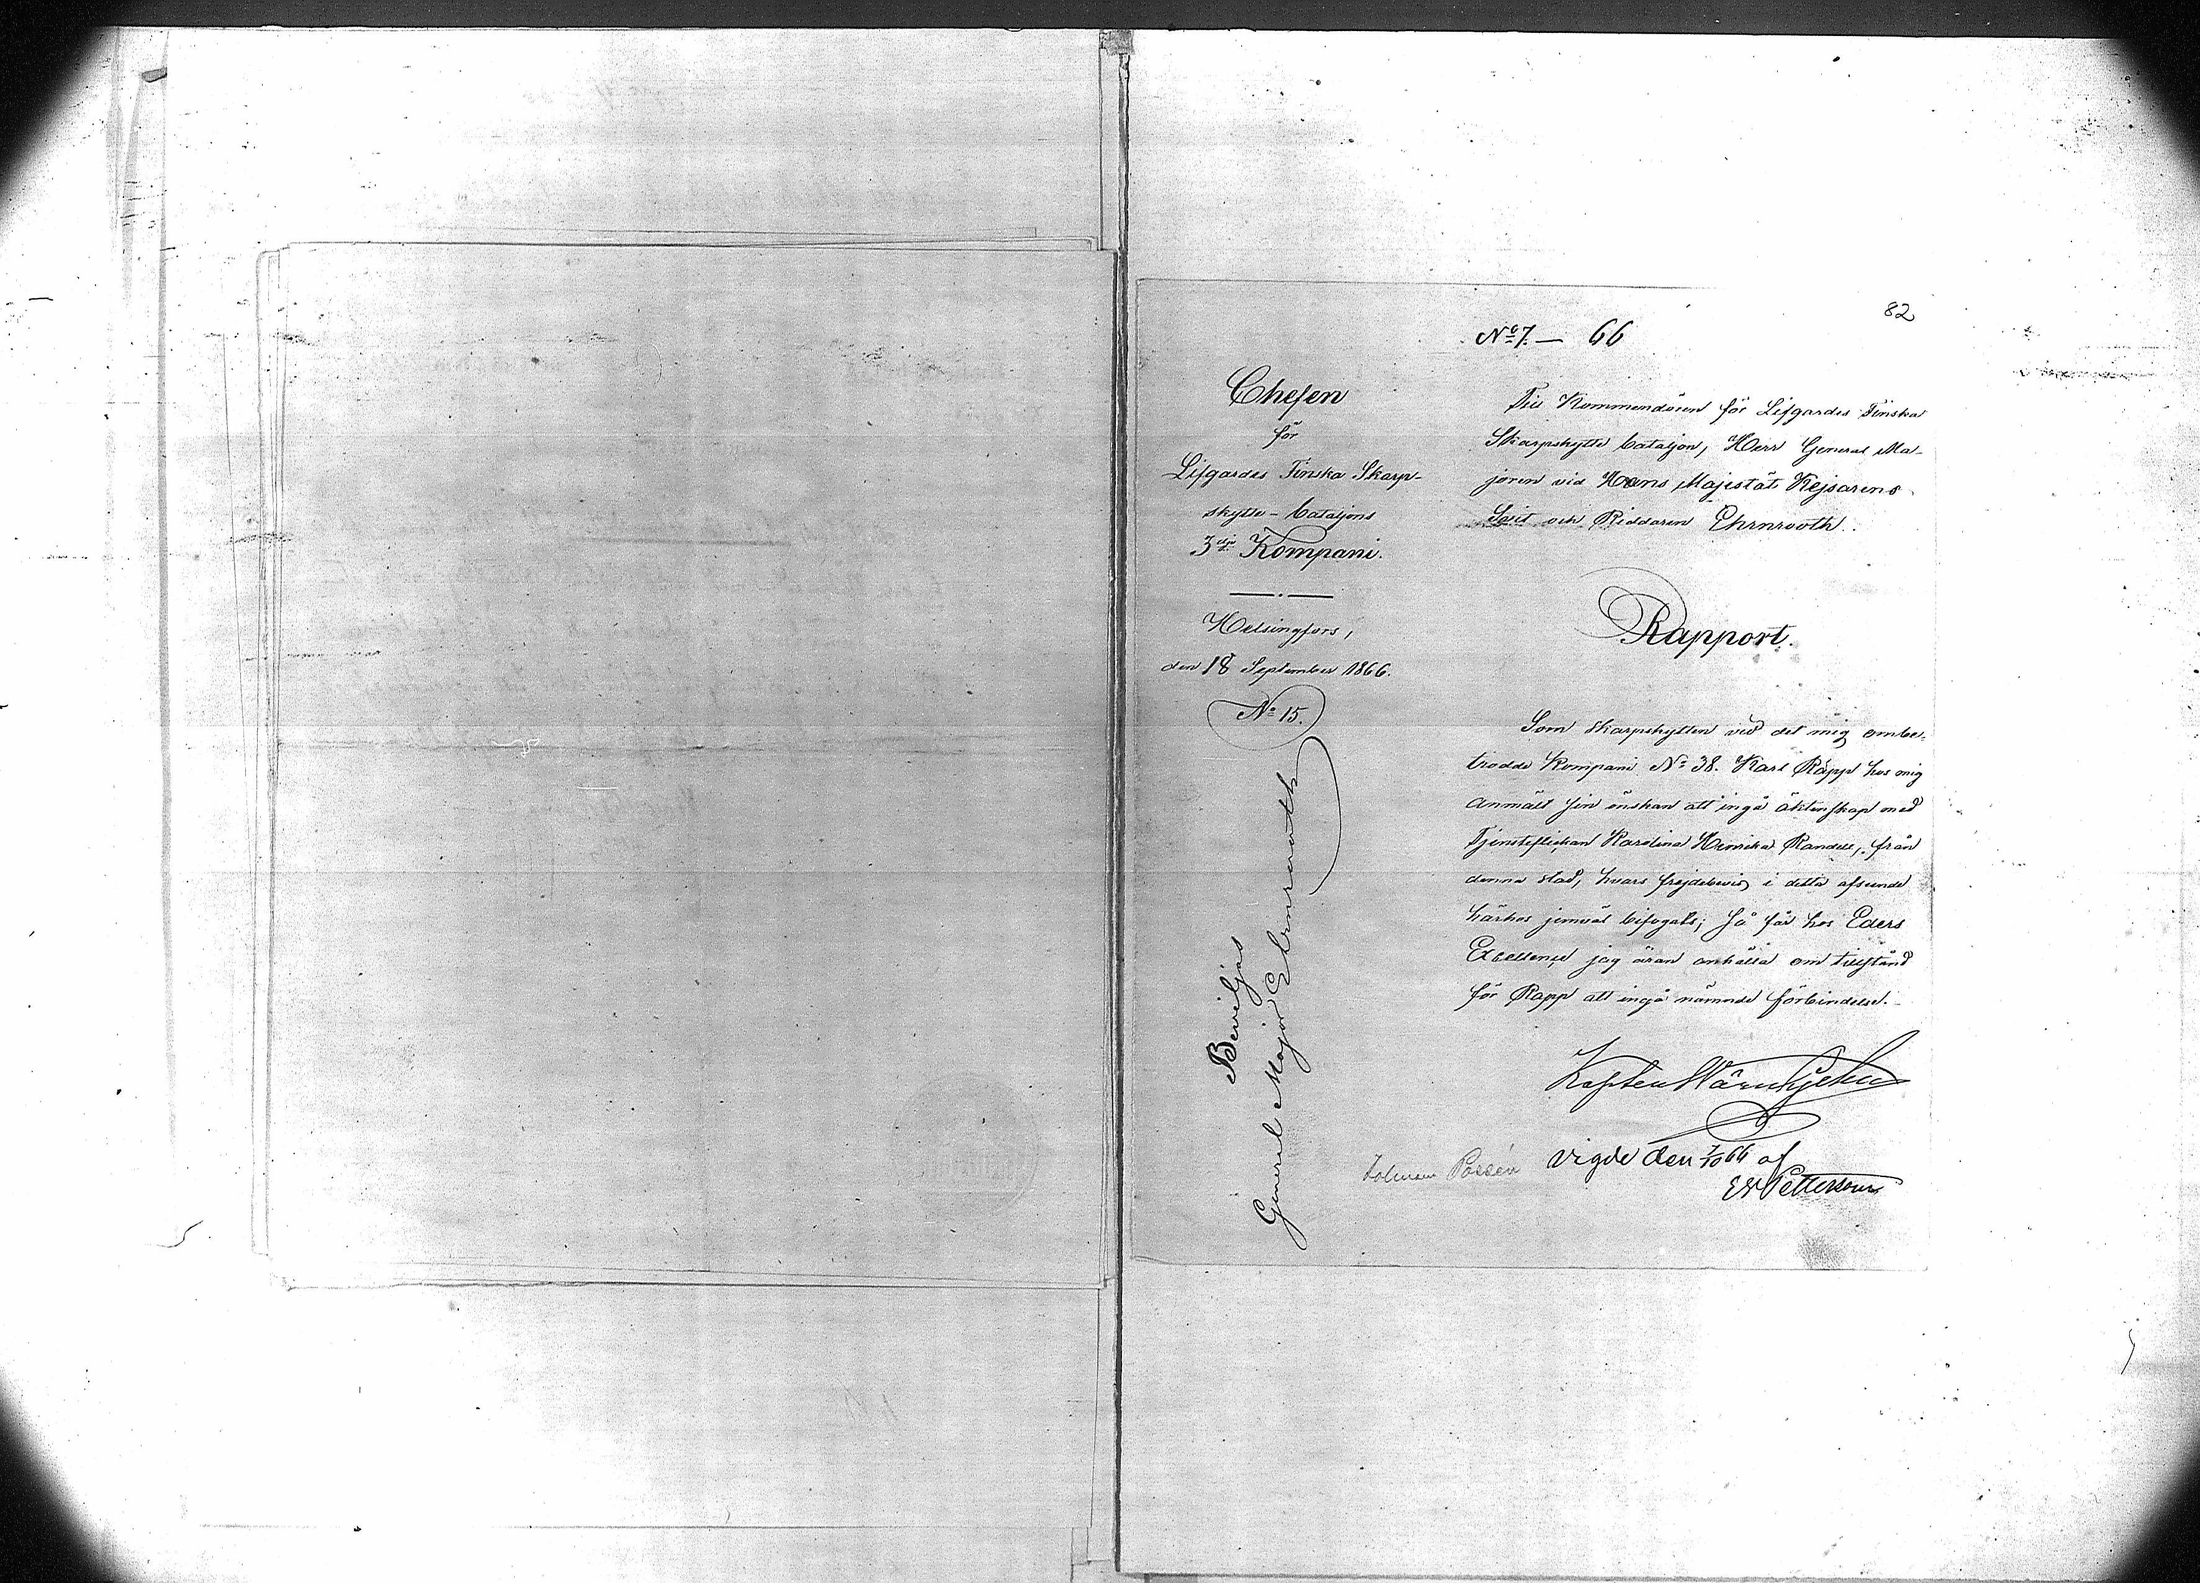 82
No 7. — 66
Chefen
för
Lifgardes Finska Skarp-
skytte-bataljons
3dje Kompani.
Helsingfors,
den 18 September 1866.
No 15.
Till Kommendören för Lifgardes Finska
Skarpskytte bataljon, Herr General Ma-
joren vid Hans Majestät Kejsarens
Svit och Riddaren Ehrnrooth.
Rapport.
Som skarpskytten vid det mig ombe-
trodde Kompani No 38. Karl Rapp hos mig
anmält sin önskan att ingå äktenskap med
Tjensteflickan Karolina Henrika Randell, från
denna stad, hvars frejdebevis i detta afseende
härhos jemväl bifogats; så får hos Eders
Excellence jag äran anhålla om tillstånd
för Rapp att ingå nämnde förbindelse.
Kapten Wärnhjelm
Beviljas
General Major Ehrnrooth
Possén
Vigde den 7/10 66 af
Pettersson